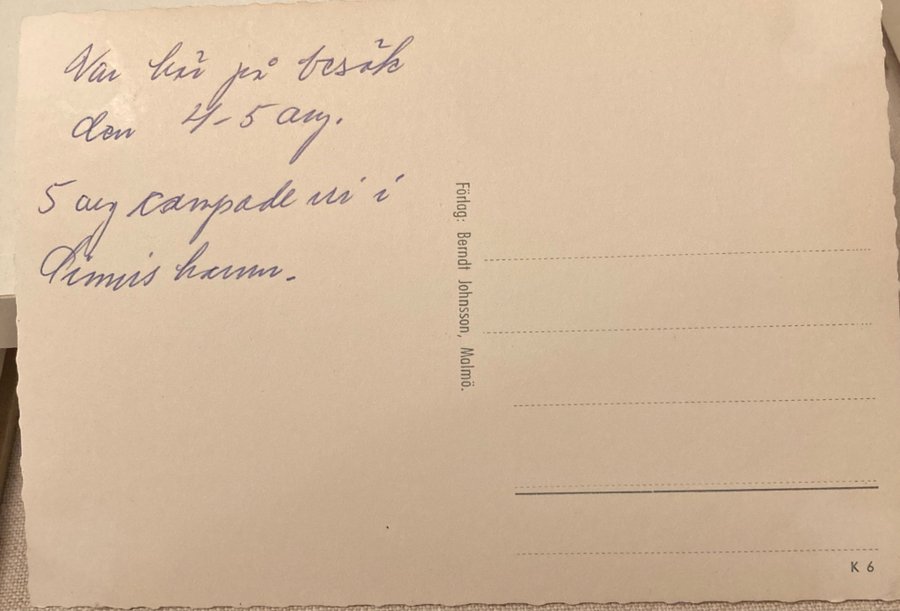 Var här på besök
den 4-5 aug.
5 aug campade vi i
Simris hamn.
Förlag: Berndt Johnsson, Malmö.
K 6